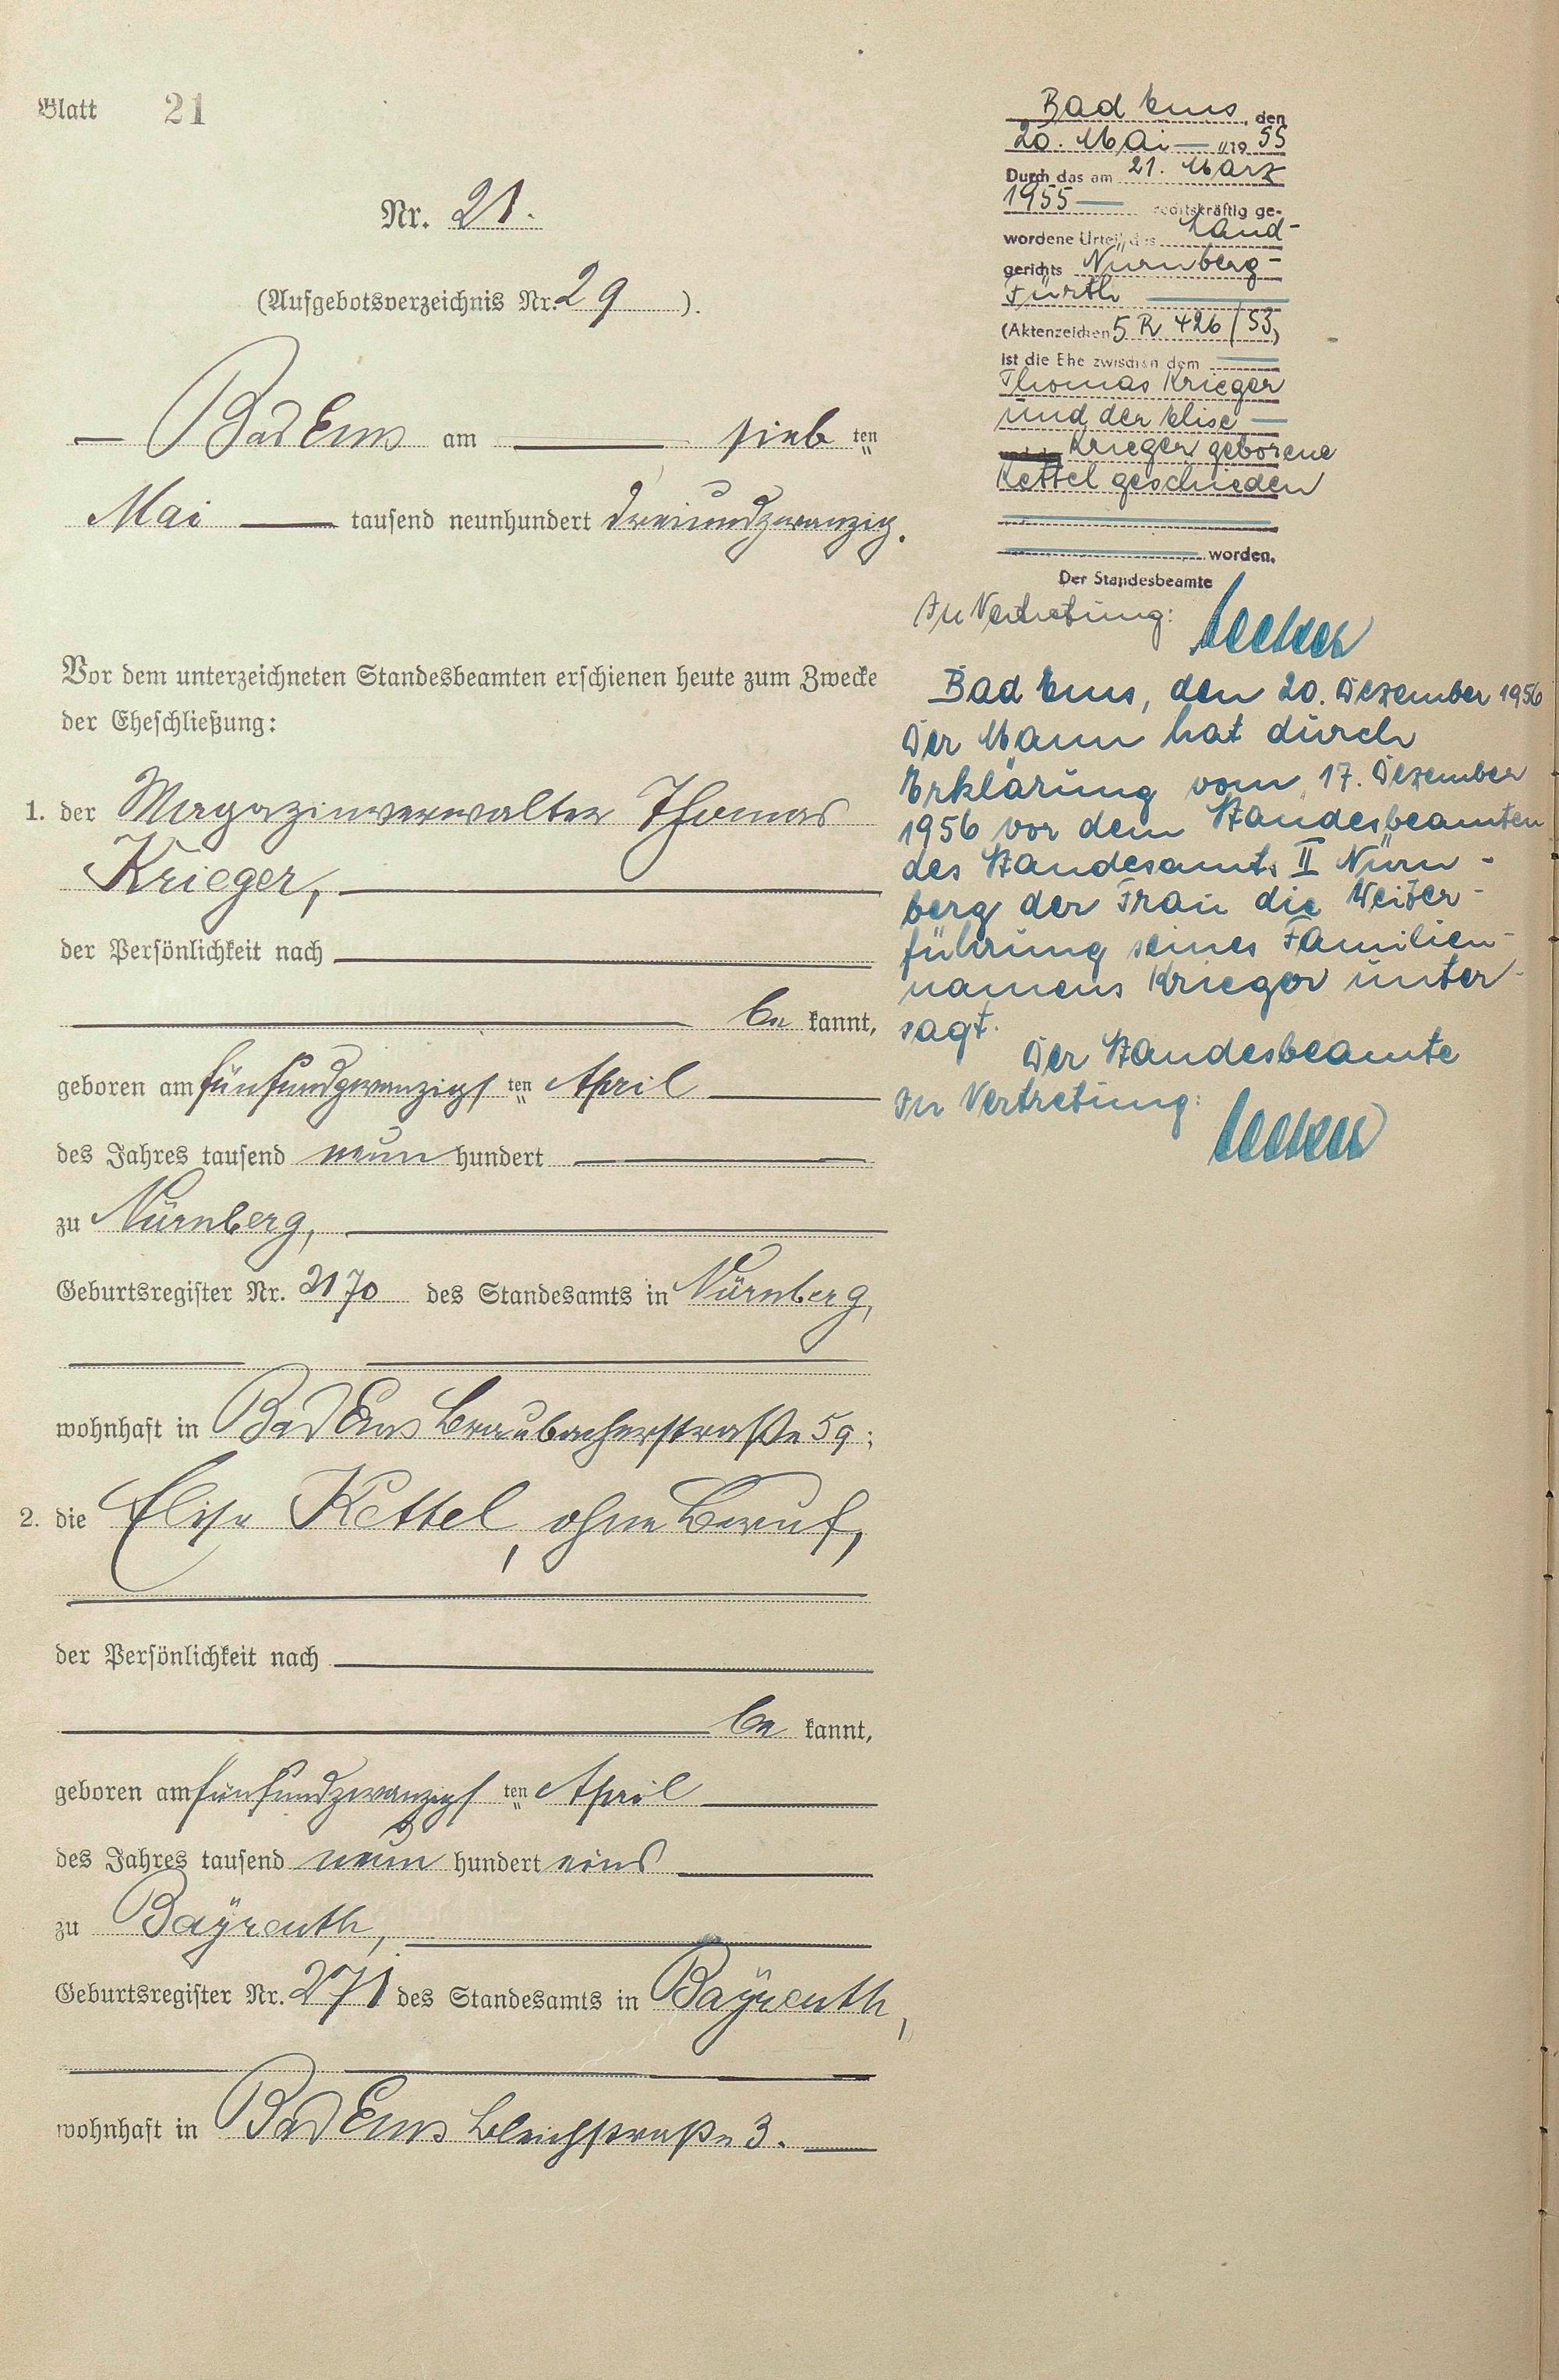 Blatt 21
Nr. 21.
(Aufgebotsverzeichnis Nr. 29).
— Bad Ems am — sieb ten
Mai — tausend neunhundert dreiundzwanzig.
Vor dem unterzeichneten Standesbeamten erschienen heute zum Zwecke
der Eheschließung:
1. der Magazinverwalter Thomas
Krieger,
der Persönlichkeit nach
be kannt,
geboren am fünfundzwanzigs ten April
des Jahres tausend neun hundert
zu Nürnberg,
Geburtsregister Nr. 2170 des Standesamts in Nürnberg,
wohnhaft in Bad Ems Braubacherstraße 59;
2. die Elise Kettel, ohne Beruf,
der Persönlichkeit nach
be kannt,
geboren am fünfundzwanzigs ten April
des Jahres tausend neun hundert eins
zu Bayreuth,
Geburtsregister Nr. 271 des Standesamts in Bayreuth,
wohnhaft in Bad Ems Bleichstraße 3.
Bad Ems, den
20. Mai — 1955
Durch das am 21. März
1955 — rechtskräftig ge-
wordene Urteil des Land-
gerichts Nürnberg-
Fürth
(Aktenzeichen 5 R 426/53)
ist die Ehe zwischen dem
Thomas Krieger
und der Elise —
Krieger geborene
Kettel geschieden
worden.
Der Standesbeamte
In Vertretung:
Bad Ems, den 20. Dezember 1956
Der Mann hat durch
Erklärung vom 17. Dezember
1956 vor dem Standesbeamten
des Standesamts II Nürn-
berg der Frau die Weiter-
führung seines Familien-
namens Krieger unter-
sagt.
Der Standesbeamte
In Vertretung: